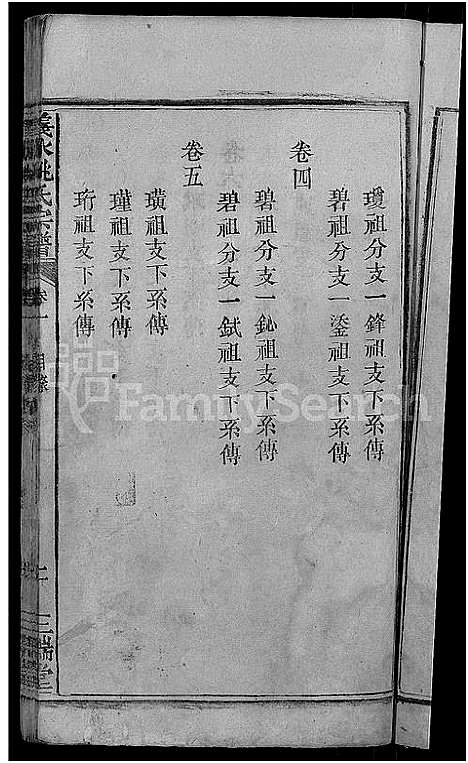 瓊祖分支一鋒祖支下系傳
碧祖分支一鋈祖支下系傳
卷四
碧祖分支一鈊祖支下系傳
碧祖分支一鉽祖支下系傳
卷五
璜祖支下系傳
瑾祖支下系傳
珩祖支下系傳
姚氏宗譜
卷一
目錄
三瑞堂
FamilySearch